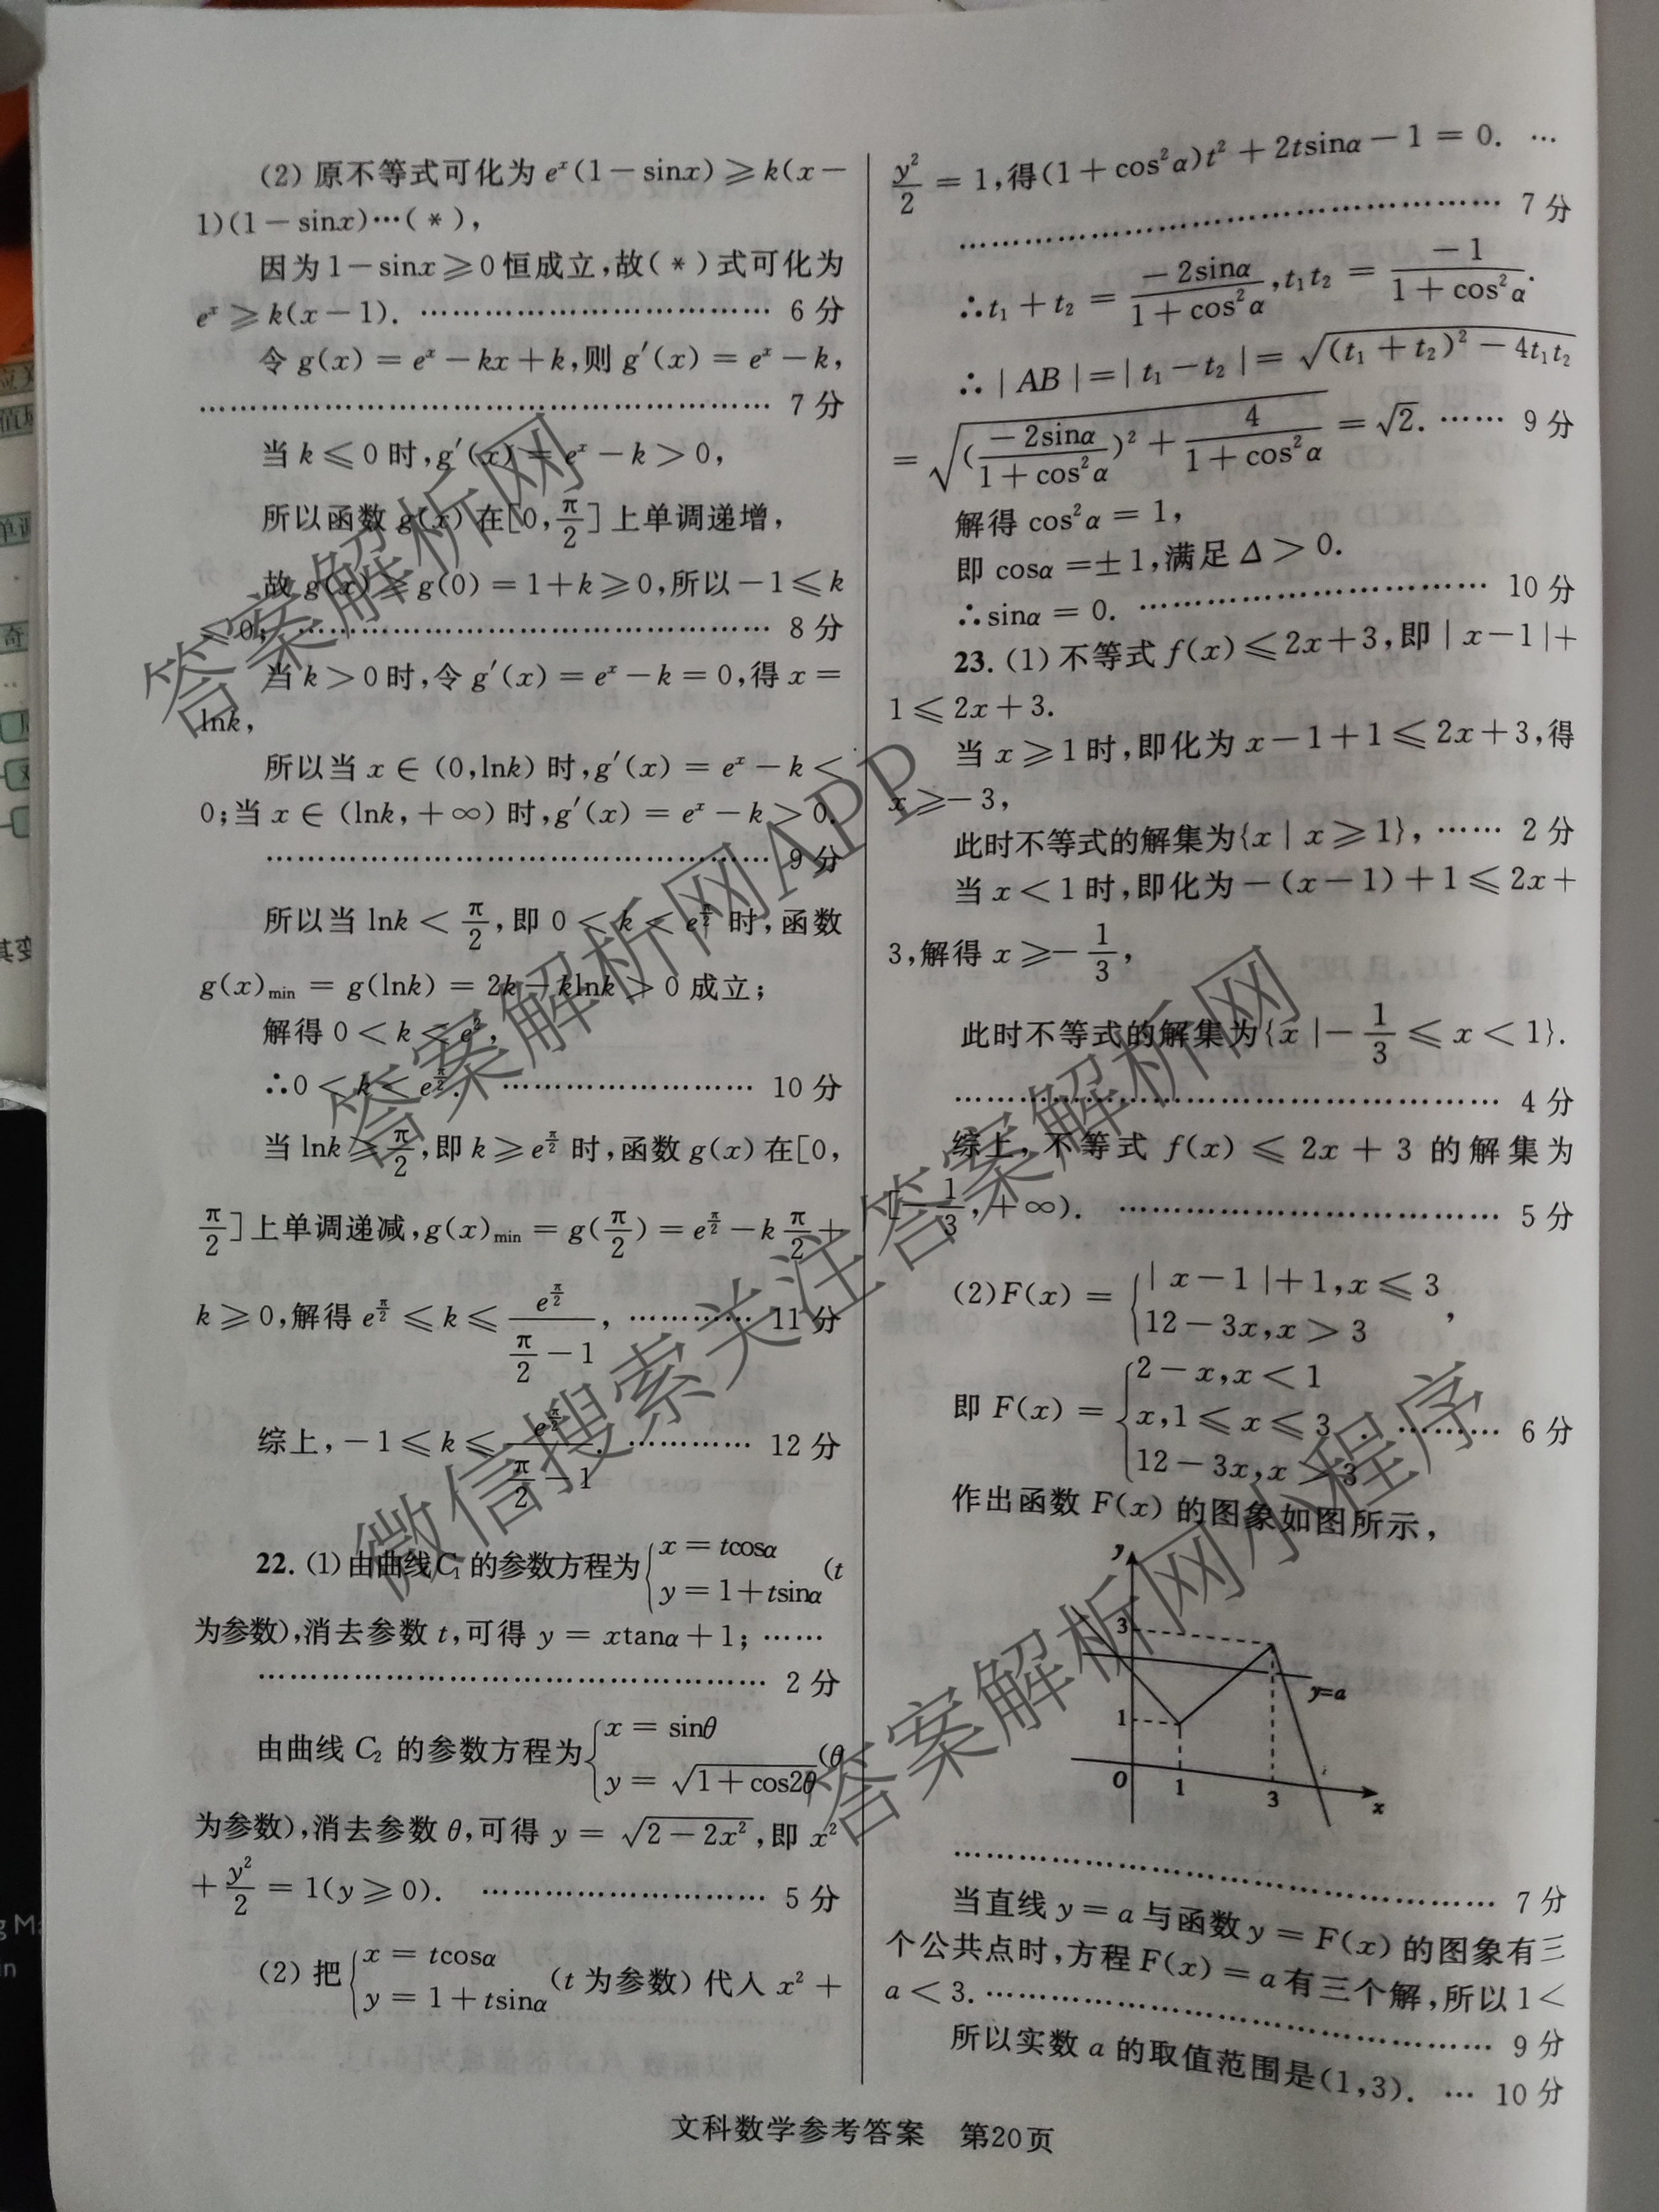 (2) 原不等式可化为 eˣ(1－sinx)≥k(x－
1)(1－sinx)…(＊),
因为1－sinx≥0恒成立,故(＊)式可化为
eˣ≥k(x－1). …………………………… 6分
令 g(x)=eˣ－kx+k,则 g′(x)=eˣ－k,
………………………………………………… 7分
当 k≤0 时,g′(x)=eˣ－k>0,
所以函数 g(x) 在[0,π/2]上单调递增,
故 g(x)≥g(0)=1+k≥0,所以－1≤k
≤0; ………………………………………… 8分
当 k>0时,令 g′(x)=eˣ－k=0,得 x=
lnk,
所以当 x∈(0,lnk) 时,g′(x)=eˣ－k<
0;当 x∈(lnk,+∞) 时,g′(x)=eˣ－k>0.
………………………………………… 9分
所以当 lnk<π/2,即 0<k<e^(π/2) 时,函数
g(x)min=g(lnk)=2k－klnk>0 成立;
解得 0<k<e²,
∴0<k<e^(π/2). …………………… 10分
当 lnk≥π/2,即 k≥e^(π/2) 时,函数 g(x) 在[0,
π/2]上单调递减,g(x)min=g(π/2)=e^(π/2)－kπ/2+
k≥0,解得 e^(π/2)≤k≤e^(π/2)/(π/2－1), ………… 11分
综上,－1≤k≤e^(π/2)/(π/2－1). ………… 12分
22. (1)由曲线C₁的参数方程为{x=tcosα
y=1+tsinα (t
为参数),消去参数 t,可得 y=xtanα+1; ……
………………………………………… 2分
由曲线 C₂ 的参数方程为{x=sinθ
y=√(1+cos2θ) (θ
为参数),消去参数 θ,可得 y=√(2－2x²),即 x²
+y²/2=1(y≥0). ……………………… 5分
(2) 把{x=tcosα
y=1+tsinα (t 为参数) 代入 x²+
y²/2=1,得(1+cos²α)t²+2tsinα－1=0. …
……………………………………………… 7分
∴t₁+t₂=－2sinα/(1+cos²α),t₁t₂=－1/(1+cos²α).
∴|AB|=|t₁－t₂|=√((t₁+t₂)²－4t₁t₂)
=√((－2sinα/(1+cos²α))²+4/(1+cos²α))=√2. …… 9分
解得 cos²α=1,
即 cosα=±1,满足 Δ>0.
∴sinα=0. …………………………… 10分
23. (1) 不等式 f(x)≤2x+3,即|x－1|+
1≤2x+3.
当 x≥1时,即化为 x－1+1≤2x+3,得
x≥－3,
此时不等式的解集为{x|x≥1}, …… 2分
当 x<1时,即化为－(x－1)+1≤2x+
3,解得 x≥－1/3,
此时不等式的解集为{x|－1/3≤x<1}.
……………………………………………… 4分
综上,不等式 f(x)≤2x+3 的解集为
[－1/3,+∞). ……………………………… 5分
(2)F(x)={|x－1|+1,x≤3
12－3x,x>3,
即 F(x)={2－x,x<1
x,1≤x≤3
12－3x,x>3. ………… 6分
作出函数 F(x) 的图象如图所示,
y
3
y=a
1
O 1 3 x
……………………………………………… 7分
当直线 y=a 与函数 y=F(x) 的图象有三
个公共点时,方程 F(x)=a 有三个解,所以 1<
a<3. ………………………………………… 9分
所以实数 a 的取值范围是(1,3). … 10分
文科数学参考答案 第20页
答案解析网
答案解析网APP
微信搜索关注答案解析网
答案解析网小程序